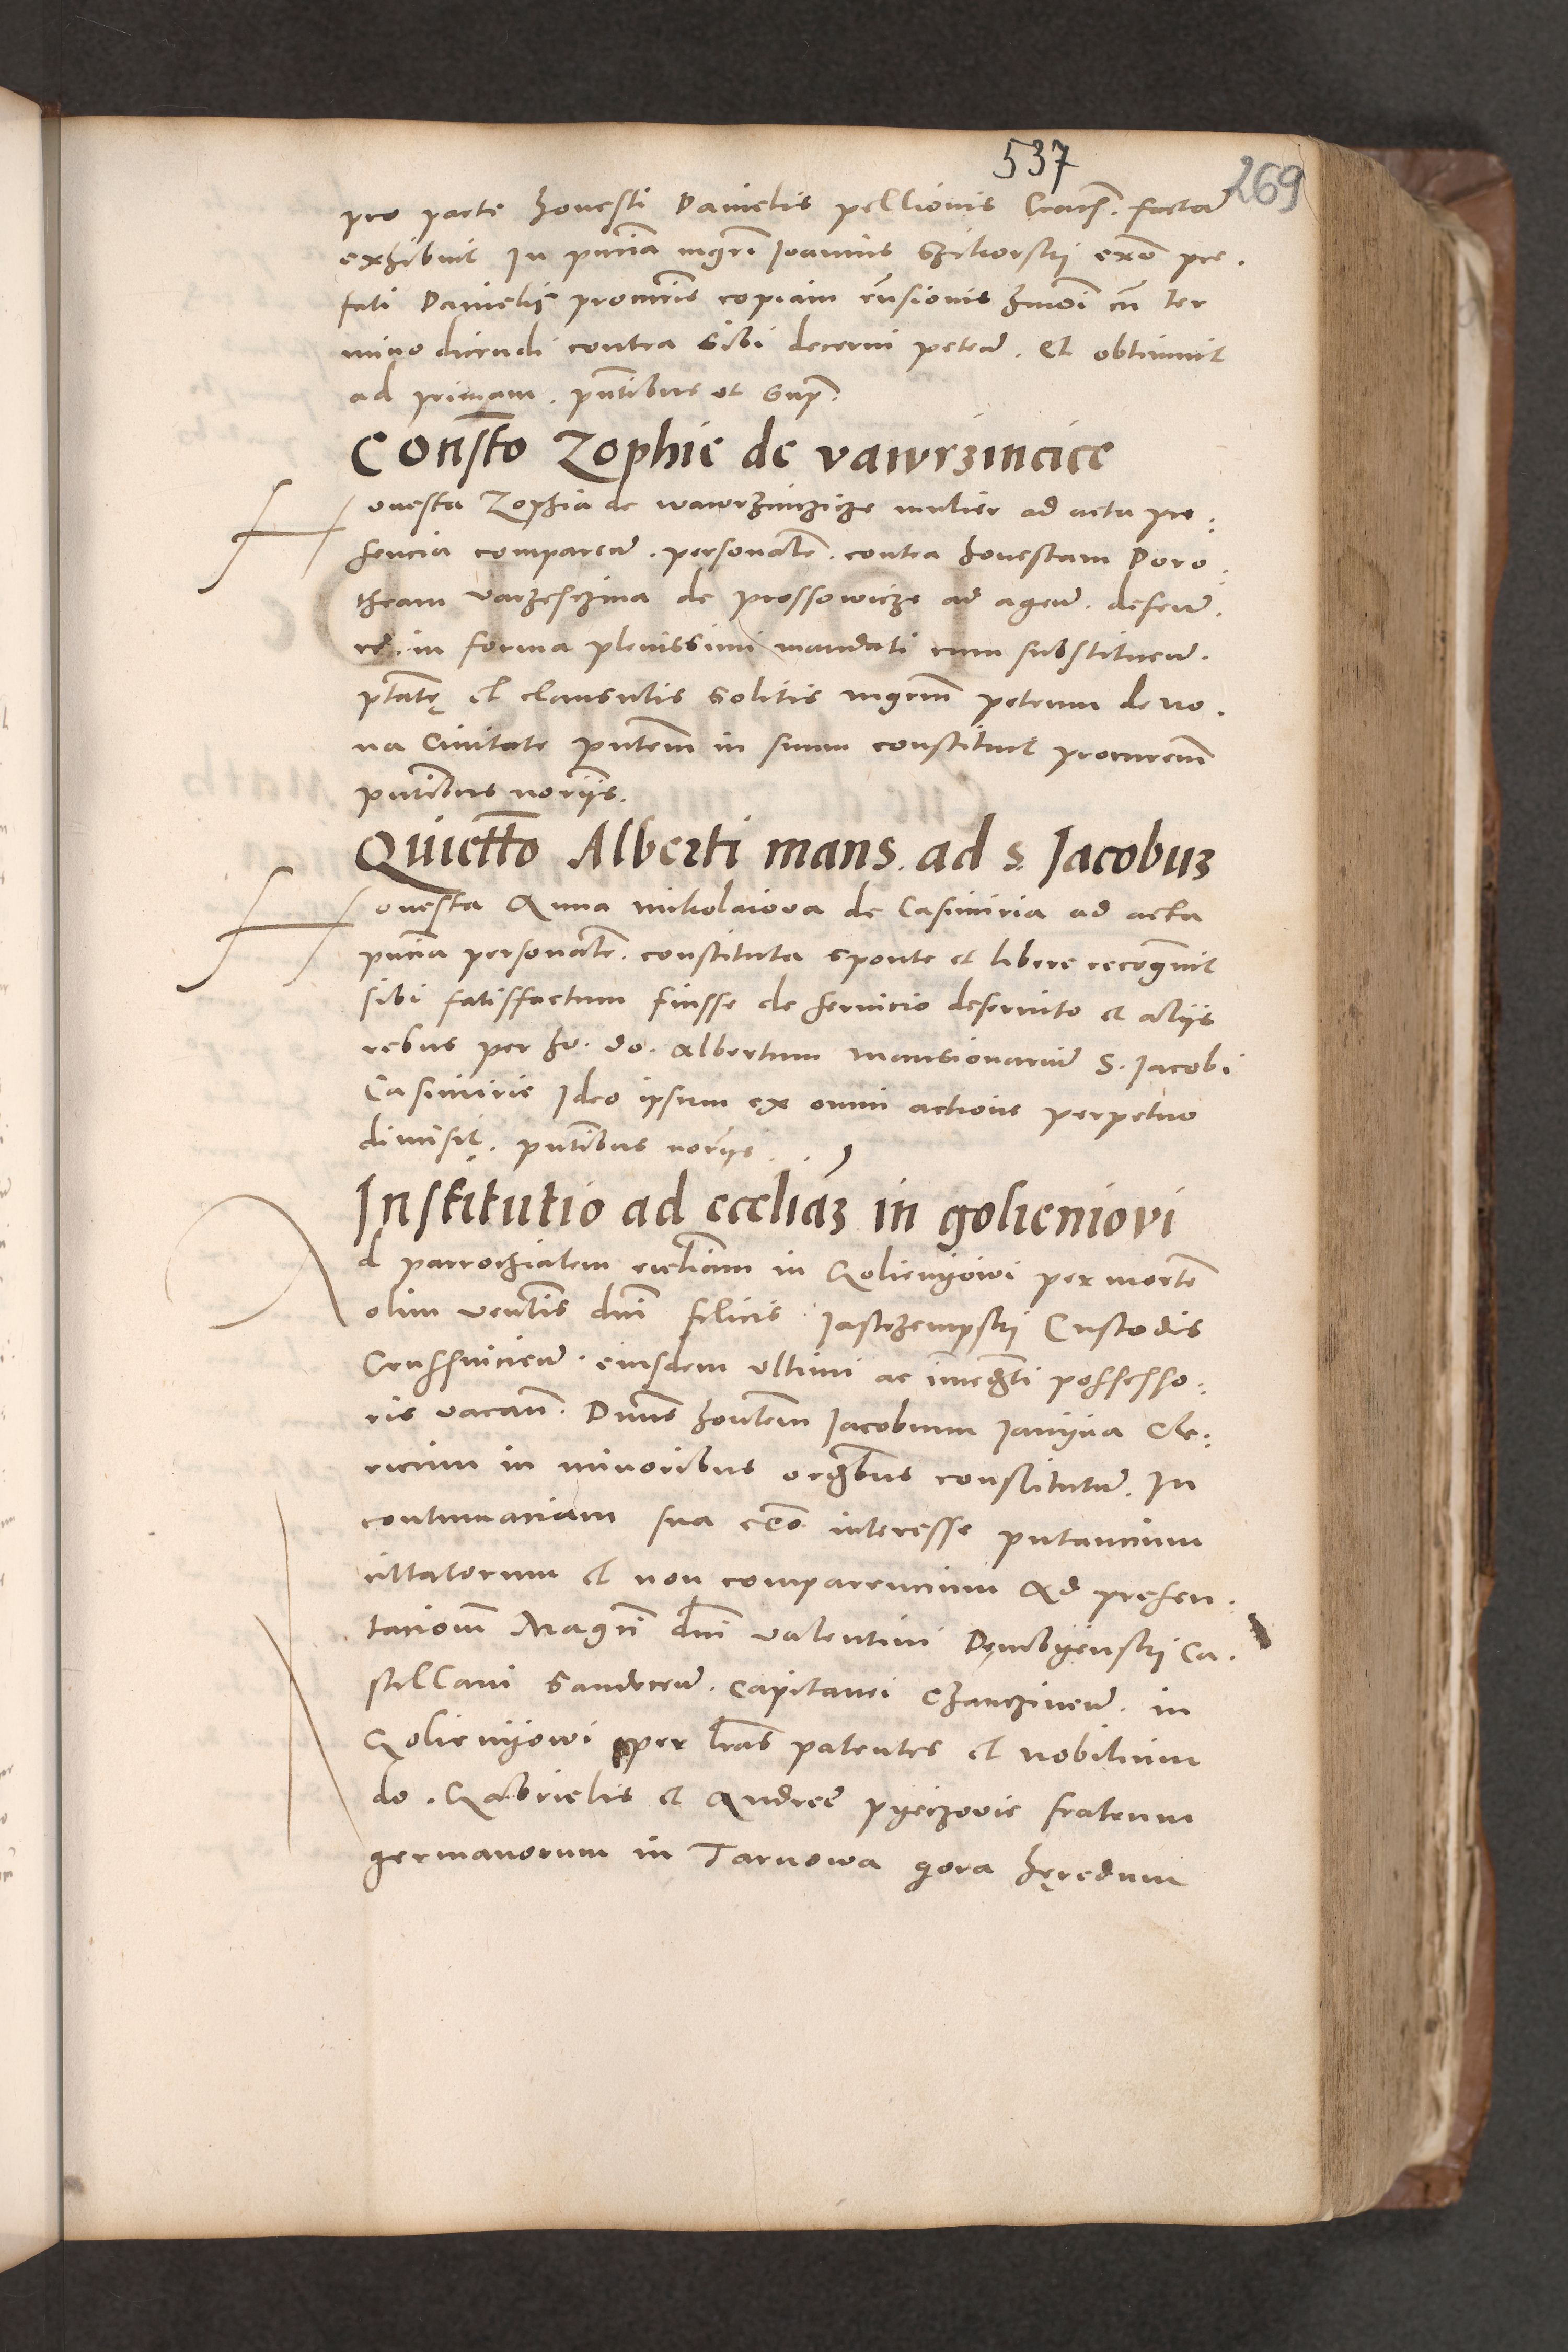 537
269
pro parte honesti Danielis pellionis Crac. factam
exhibuit In pncia mgri Ioannis Szikorskij exo pre.
fati Danielis procuris copiam rnsionis hmoi cu ter
mino dicendi contra sibi decerni peten. Et obtinuit
ad primam. pntibus ut sup.
Consto Zophie de vawrzincice
Honesta Zophia de wawrzinzicze mulier ad acta pre:
sencia comparen. personalr. contra honestam Doro:
theam varzeschina de prossowicze ad agen. defen.
in forma plenissimi mandati cum substituen.
ptate et clausulis solitis mgrum petrum de no.
va Civitate pntem in suum constituit procurem
pntibus noriis.
Quietto Alberti mans. ad s. Jacobum
Honesta Anna mikolaiova de Casimiria ad acta
pncia personalr. constituta sponte et libere recognovit
sibi satisfactum fuisse de servicio deservito et aliis
rebus per ho. do. Albertum mansionarium S. Jacobi
Casimirie Ideo ipsum ex omni actione perpetuo
dimisit. pntibus noriis
Institutio ad eccliam in golieniovi
Ad parrochialem eccliam in Golienijowi per mortem
olim venlis dni felicis Jastrzempskij Custodis
Crusswicien. eiusdem ultimi ac immedti possesso:
ris vacan. Dnus hontem Jacobum Janijna Cle:
ricum in minoribus ordbus constitutum. In
contumaciam sua interesse putancium
cittatorum et non comparencium Ad presen.
tacionem Magci dni valentini Dembijenskij Ca.
stellani Sandecen. Capitanei Chanczinen. in
Golienijowi per lras patentes et nobilium
do. Gabrielis et Andree pijeczovie fratrum
germanorum in Tarnowa gora heredum